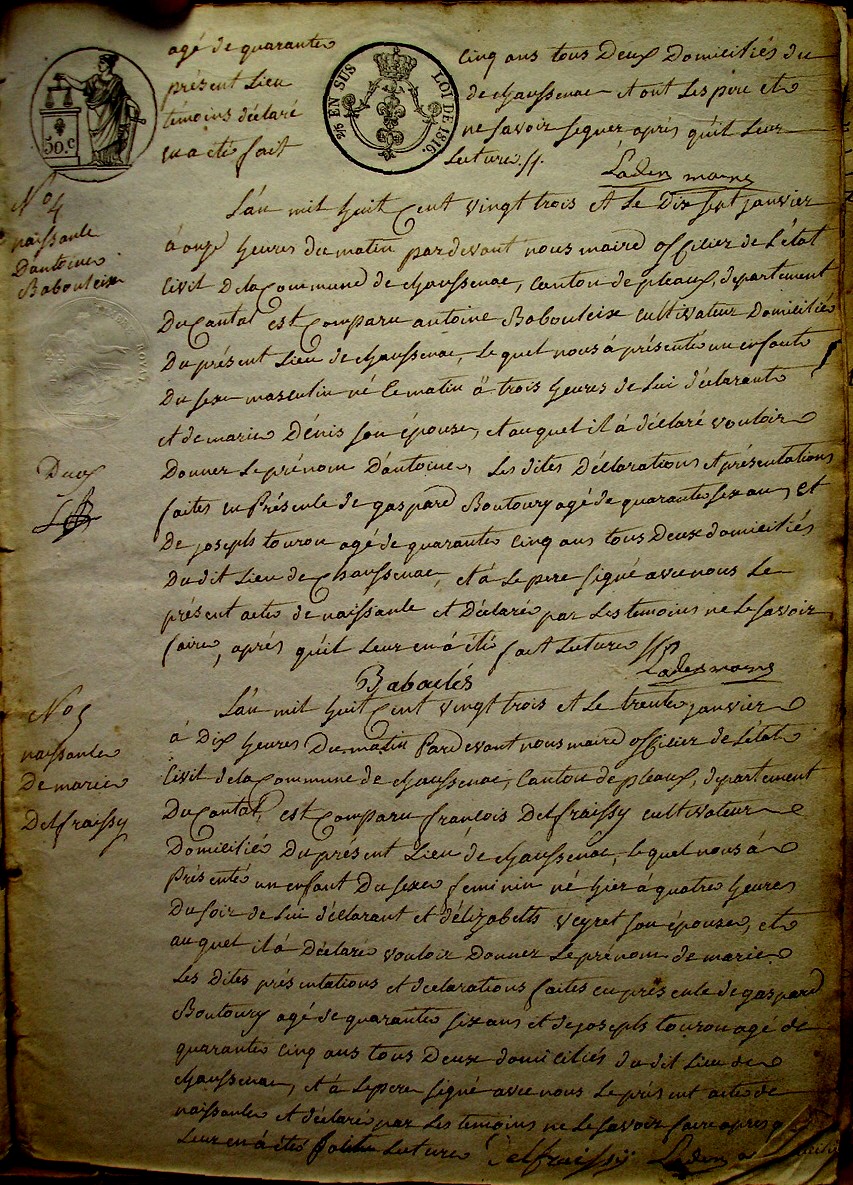 agé de quarante cinq ans tous Deux Domiciliés du
présent Lieu de chaussenac et ont Les pere et
témoins déclaré ne savoir signer après qu'il Leur
en a été fait Lecture ./.
50.c
EN SUS LOI DE 1816.
Lademaune
No 4
naissance
D'antoine
Babouleix
L'an mil huit Cent vingt trois et Le Dix sept janvier
à onze heures du matin pardevant nous maire officier de L'état
Civil De la Commune de chaussenac, Canton de pleaux, département
Du Cantal est Comparu antoine Babouleix cultivateur Domicilié
Du présent Lieu de chaussenac, Lequel nous à présenté un enfant
Du sexe masculin né Ce matin à trois heures de Lui déclarant
et de marie Dénis son épouse, et auquel il à déclaré vouloir
Donner Le prénom D'antoine, Les dites Déclarations et présentations
faites en Présence de gaspard Boutoury agé de quarante six ans, et
De joseph touron agé de quarante cinq ans tous Deux domiciliés
Du dit Lieu de Chaussenac, et à Le pere signé avec nous Le
présent acte de naissance et Déclaré par Les temoins ne Le savoir
faire, après qu'il Leur en à été fait Lecture
Deux
No 5
naissance
De marie
Delfraissy
L'an mil huit Cent vingt trois et Le trente janvier
à Dix heures Du matin Pardevant nous maire officier de L'état
Civil de la Commune de chaussenac, Canton de pleaux, département
Du Cantal, est Comparu françois Delfraissy cultivateur
Domicilié Du présent Lieu de chaussenac, Lequel nous à
Présenté un enfant Du sexe feminin né hier à quatre heures
Du soir de Lui déclarant et d'élizabeth veyret son épouse, et
auquel il à Déclaré vouloir Donner Le prénom de marie
Les Dites présentations et déclarations faites en présence de gaspard
Boutoury agé de quarante six ans et de joseph touron agé de
quarante cinq ans tous Deux domiciliés du dit Lieu de
chaussenac, et à Le pere signé avec nous Le présent acte de
naissance et déclaré par Les temoins ne Le savoir faire après q
Leur en à été Lecture Delfraissy